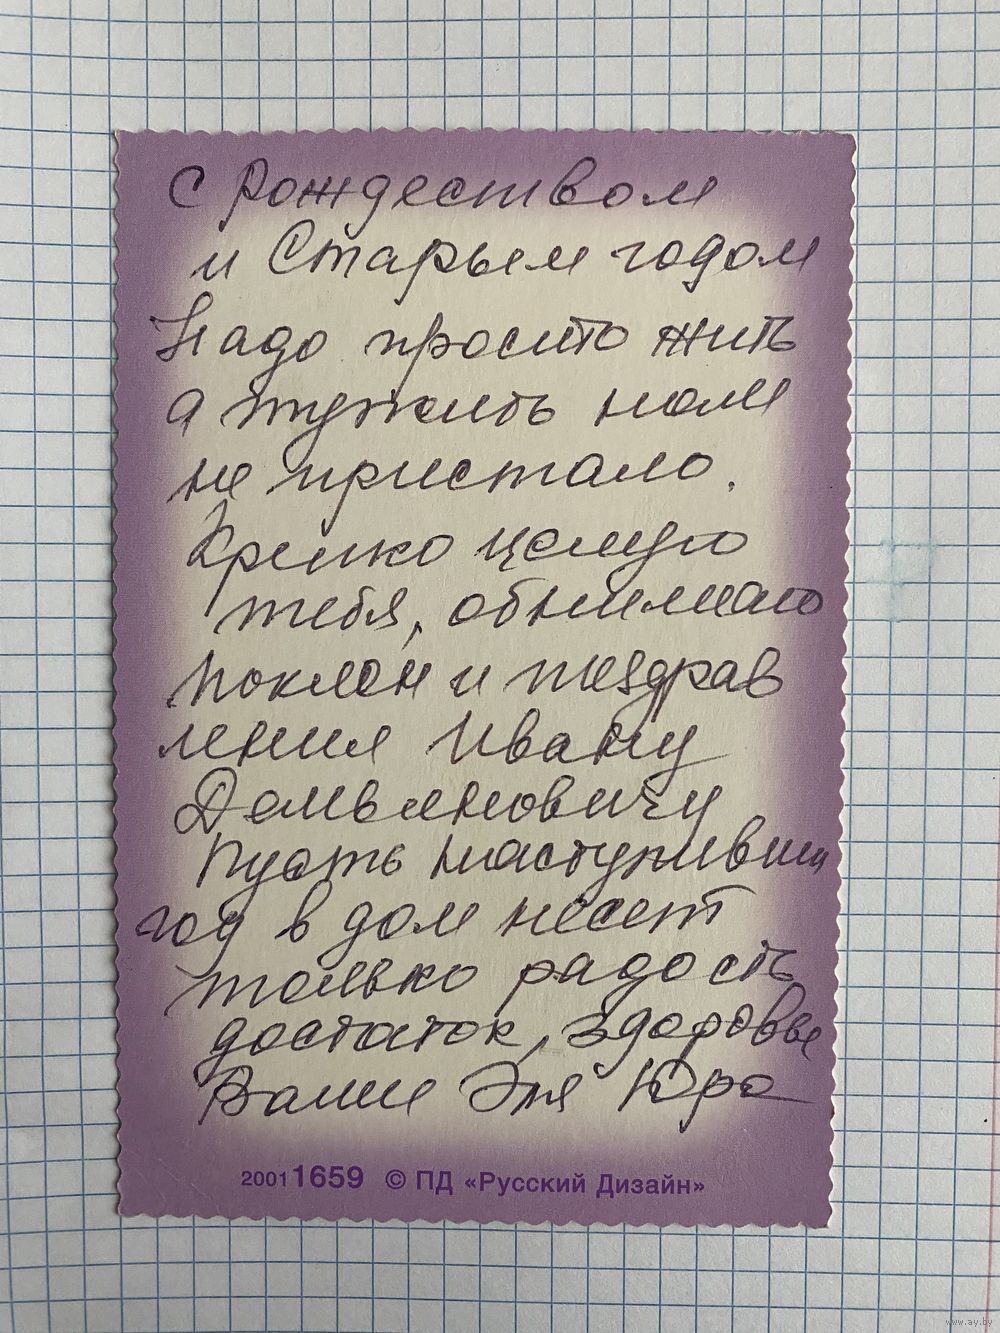 С Рождеством
и Старым годом
Надо просто жить
а тужить нам
не пристало.
Крепко целую
тебя, обнимаю
поклон и поздрав
ления Ивану
Демьяновичу
Пусть наступивши
год в дом несет
только радость
достаток, здоровье
Ваши Эля Юра
20011659 © ПД «Русский Дизайн»
www.ay.by